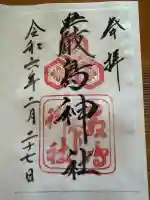 奉拝
厳島神社
令和六年二月二十七日